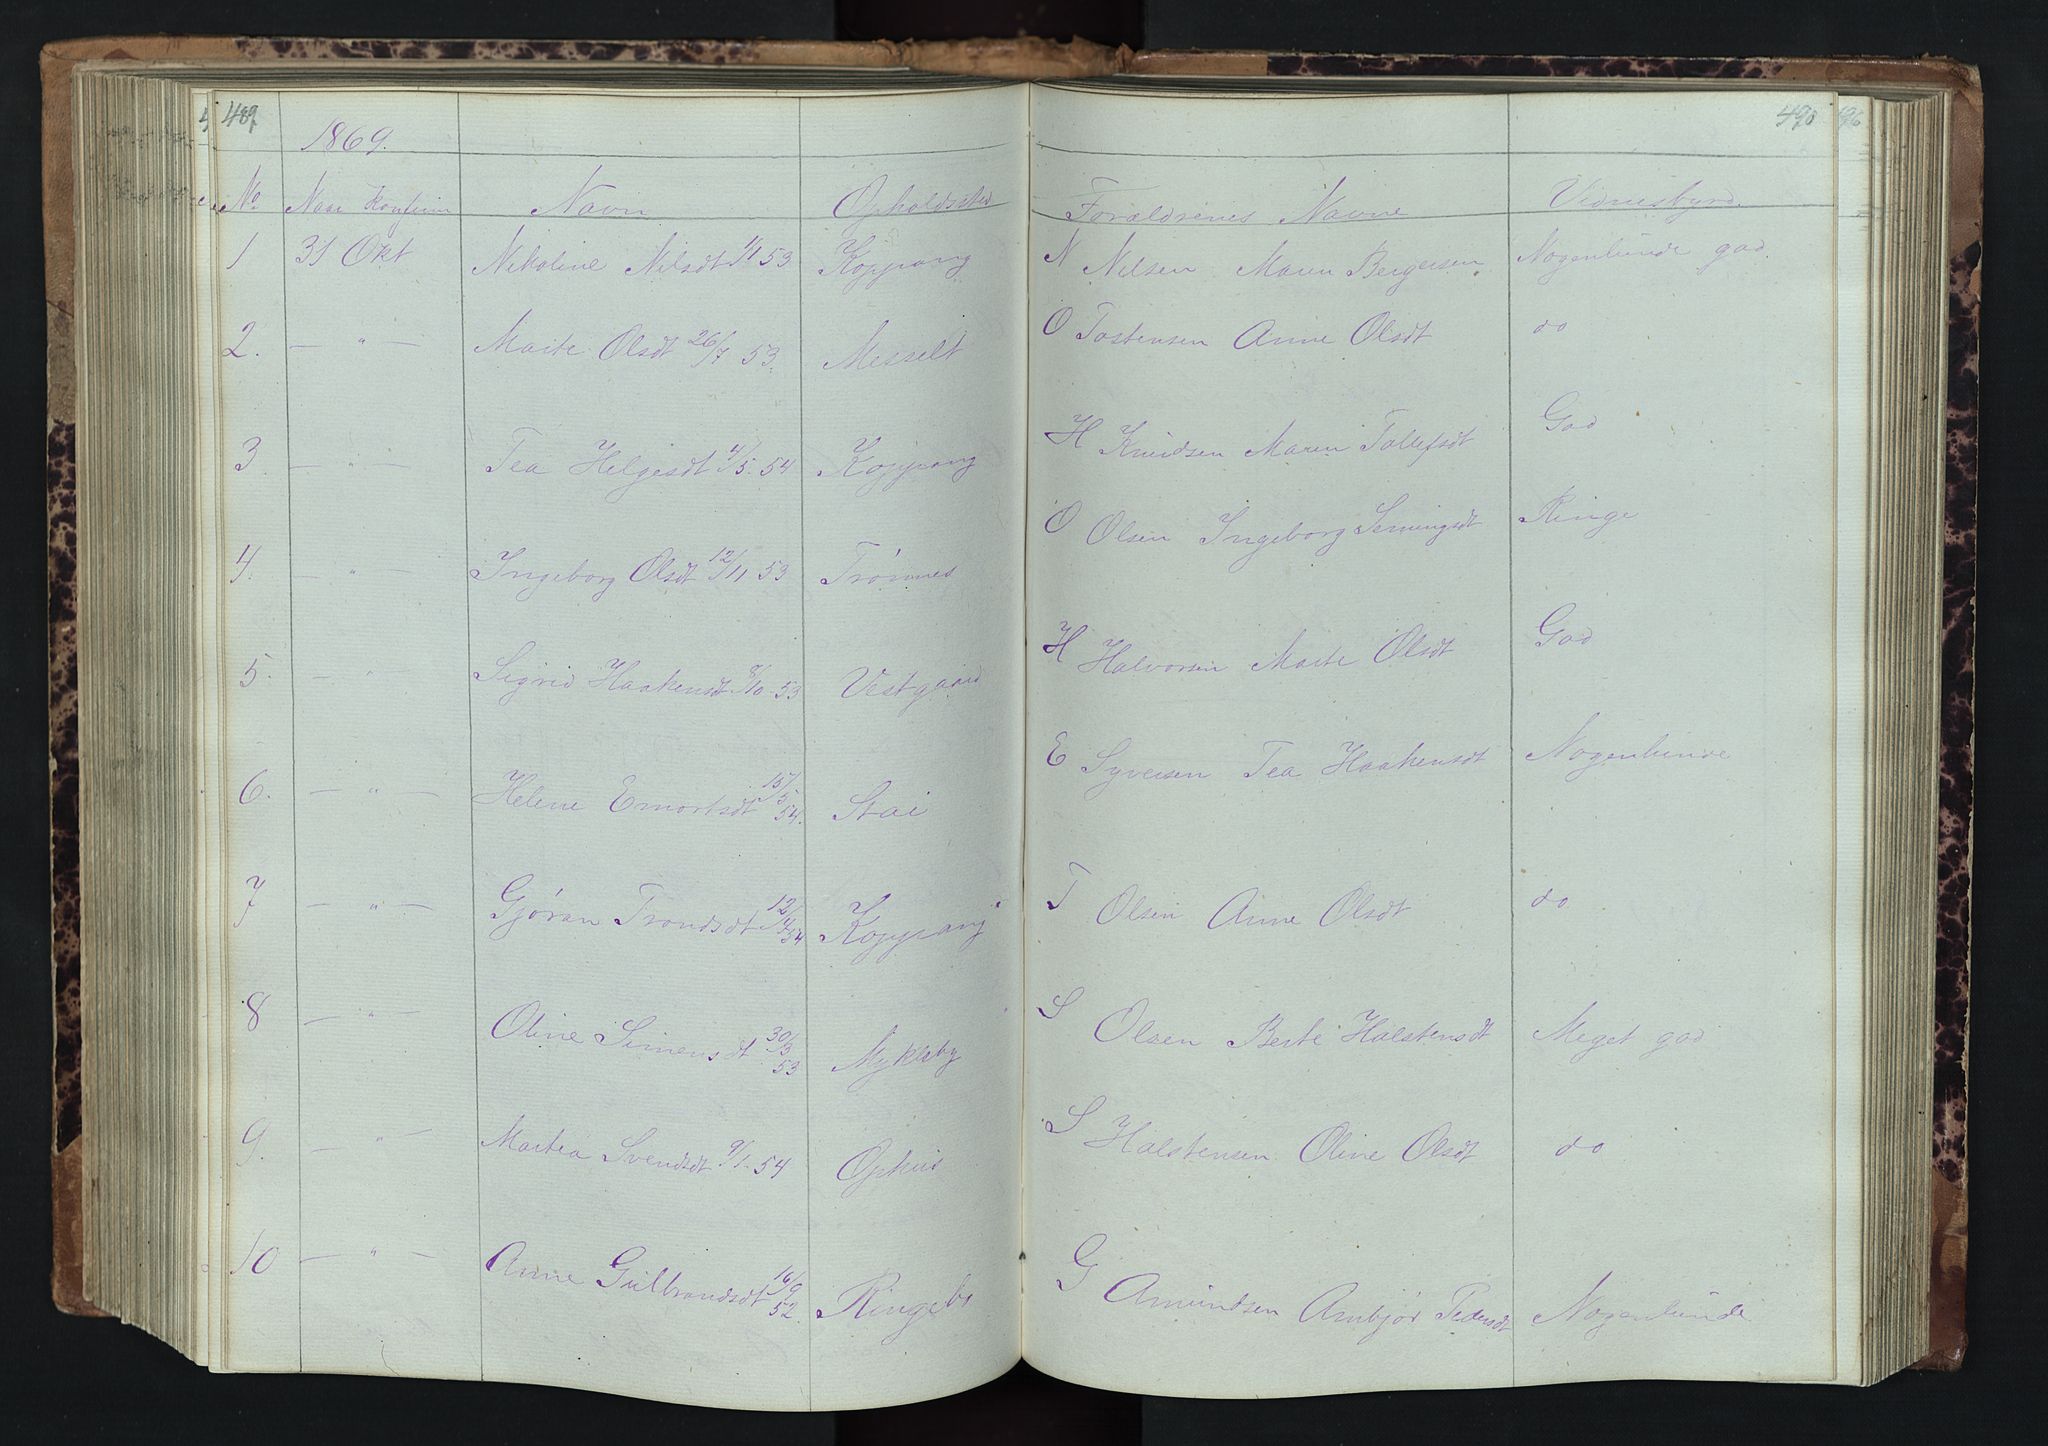 489
490
1869.
No Naar konfirm Navn Opholdssted Forældrenes Navne Vidnesbyrd
1 31 Okt Nikoline Nilsdt 53 Koppang N Nilsen Maren Bergersen Nogenlunde god
2. — " — Marte Olsdt 26/7 53. Messelt O Tostensen Anne Olsdt do
3 — " — Tea Helgesdt 4/5. 54 Koppang H Knudsen Maren Tollefsdt God
4. — " — Ingeborg Olsdt 12/11 53 Trønnes O Olsen Ingeborg Semingsdt Ringe
5. — " — Sigrid Haakensdt 53 Vestgaard H Halvorsen Marte Olsdt God
6. — " — Helene Emortsdt 15/5 54. Stai E Syversen Tea Haakensdt Nogenlunde
7 — " — Gjøran Trondsdt 12/4 54 Koppang T Olsen Anne Olsdt do
8 — " — Oline Simensdt 30/3 53 Mykleby S Olsen Berte Halstensdt Meget god
9. — " — Martea Svendsdt 9/1. 54 Ophus S Halstensen Oline Olsdt do
10 — " — Anne Gulbrandsdt 16/9 52. Ringebo G Amundsen Ambjør Pedersdt Nogenlunde